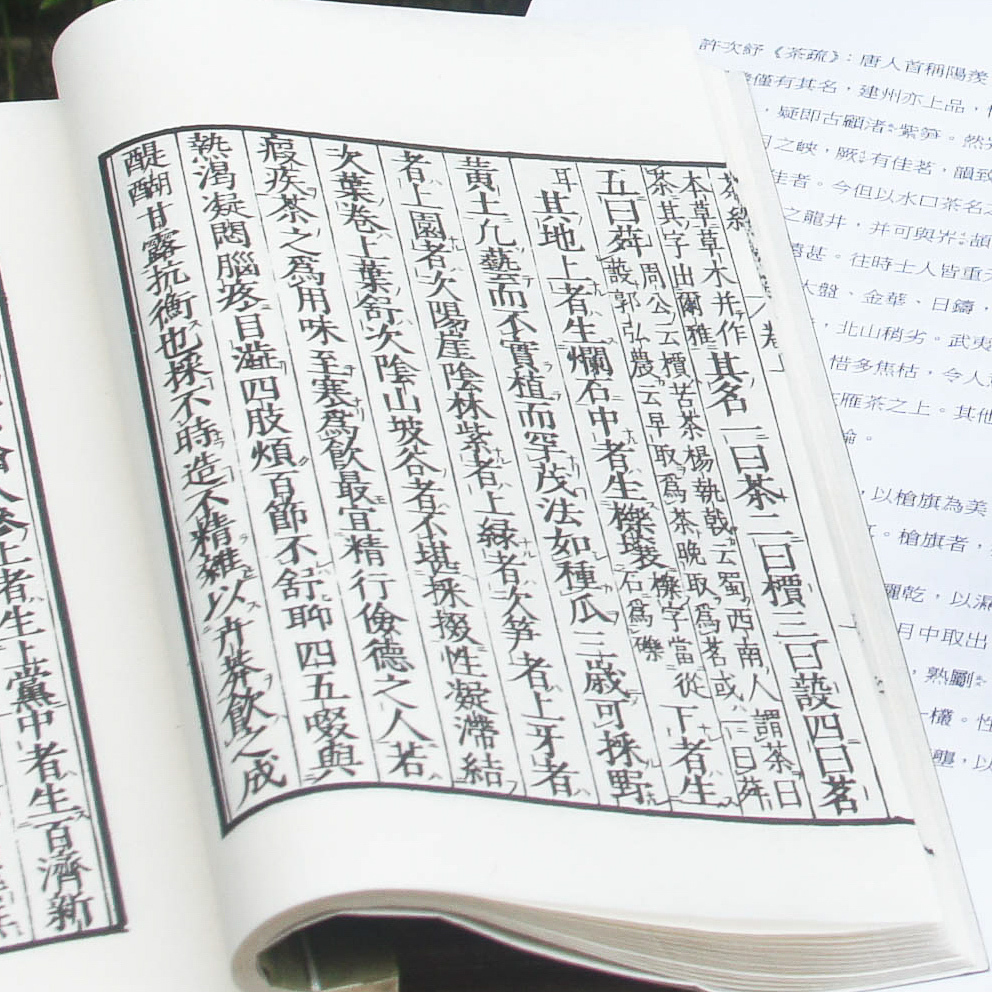 許次紓《茶疏》：唐人首稱陽羨
僅有其名，建州亦上品，
，疑即古顧渚紫笋。然
之峽，厥有佳茗，韻致
佳者。今但以水口茶名之
之龍井，并可與岕頡
甚。往時士人皆重天
大盤、金華、日鑄，
，北山稍劣。武夷
惜多焦枯，令人
雁茶之上。其他
論。
，以槍旗為美
。槍旗者，
乾，以
月中取出
，熟
。性
，以
茶經 卷上
本草草木并作
茶其字出爾雅
其名一曰茶二曰檟三曰蔎四曰茗
五曰荈
周公云檟苦茶楊執戟云蜀西南人謂茶曰
蔎郭弘農云早取爲茶晚取爲茗或一曰荈
耳
其地上者生爛石中者生櫟壤
櫟字當從
石爲礫
下者生
黃土凡藝而不實植而罕茂法如種瓜三歲可採野
者上園者次陽崖陰林紫者上緑者次笋者上牙者
次葉卷上葉舒次陰山坡谷者不堪採掇性凝滯結
瘕疾茶之爲用味至寒爲飲最宜精行儉德之人若
熱渴凝悶腦疼目澁四肢煩百節不舒聊四五啜與
醍醐甘露抗衡也採不時造不精雜以卉莽飲之成
人參上者生上黨中者生百濟新